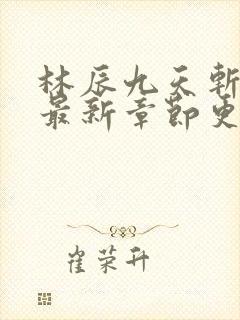 林辰九天斩
最新章節更
崔荣升